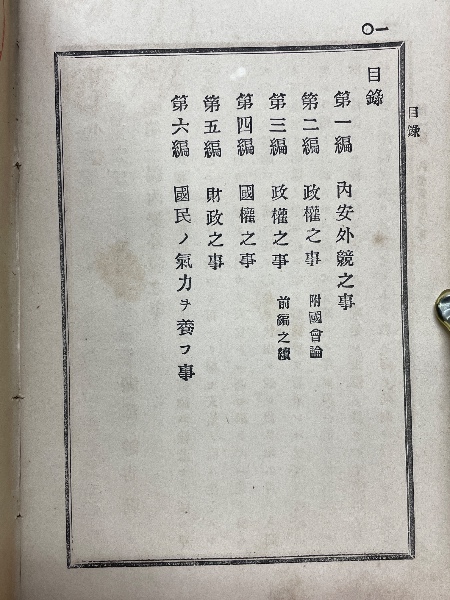 一〇
目錄
目錄
第一編 內安外競之事
第二編 政權之事 附國會論
第三編 政權之事 前編之續
第四編 國權之事
第五編 財政之事
第六編 國民ノ氣力ヲ養フ事